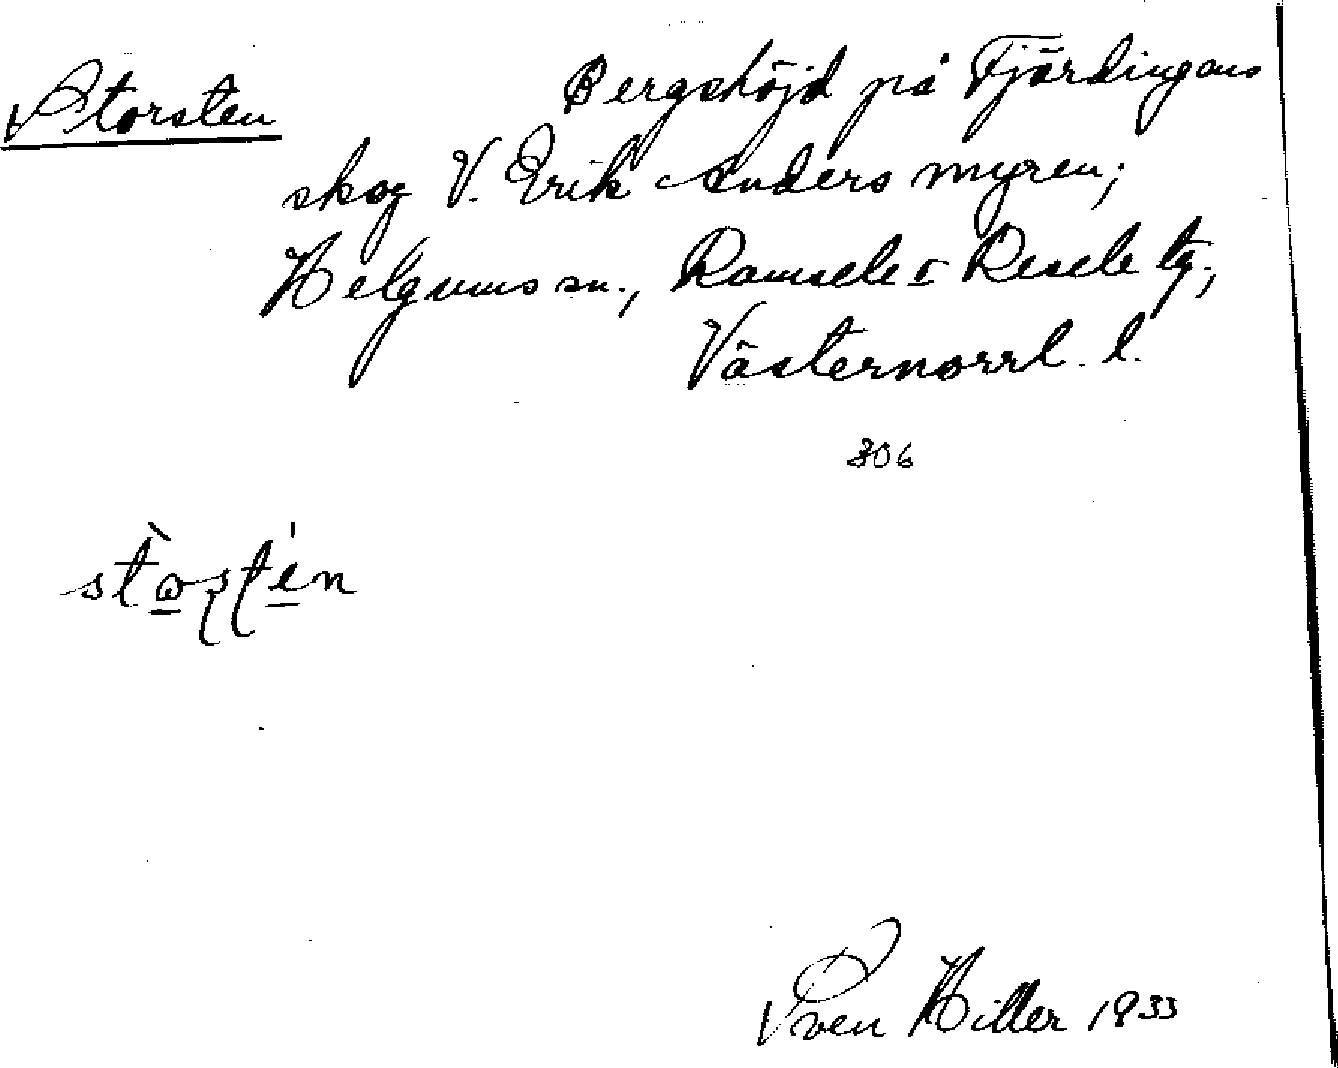 Storsten Bergshöjd på Fjärdingens
skog V. Erik-Anders myren;
Helgums sn., Ramsele o Resele tg.,
Västernorrl. l.
306
Sven Hiller 1933